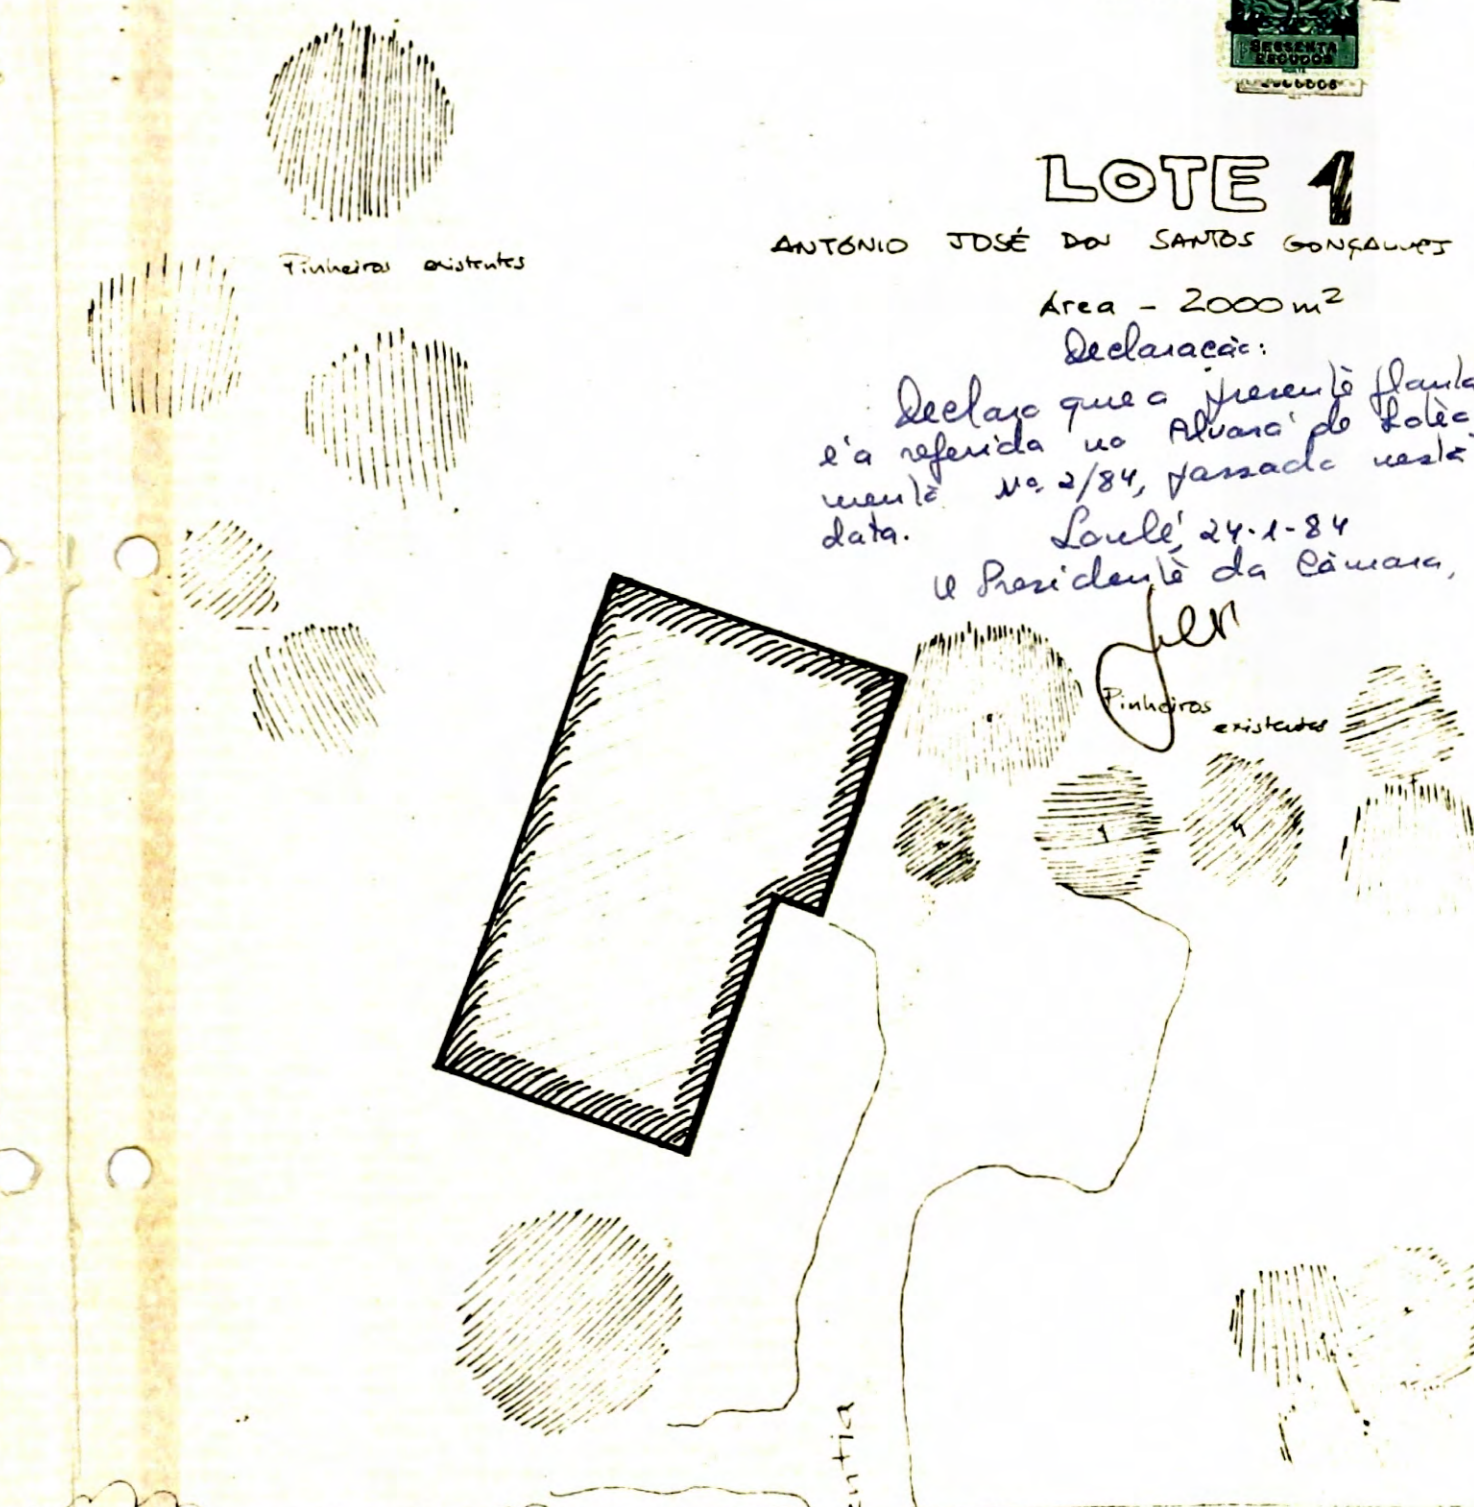 SESSENTA
ESCUDOS
LOTE 1
ANTÓNIO JOSÉ DOS SANTOS GONÇALVES
Área - 2000 m²
Declaração:
Declaro que a presente planta
é a referida no Alvará de Lotea
mento Nº 2/84, passado nesta
data. Loulé, 24-1-84
O Presidente da Câmara,
Pinheiros existentes
Pinheiros
existentes